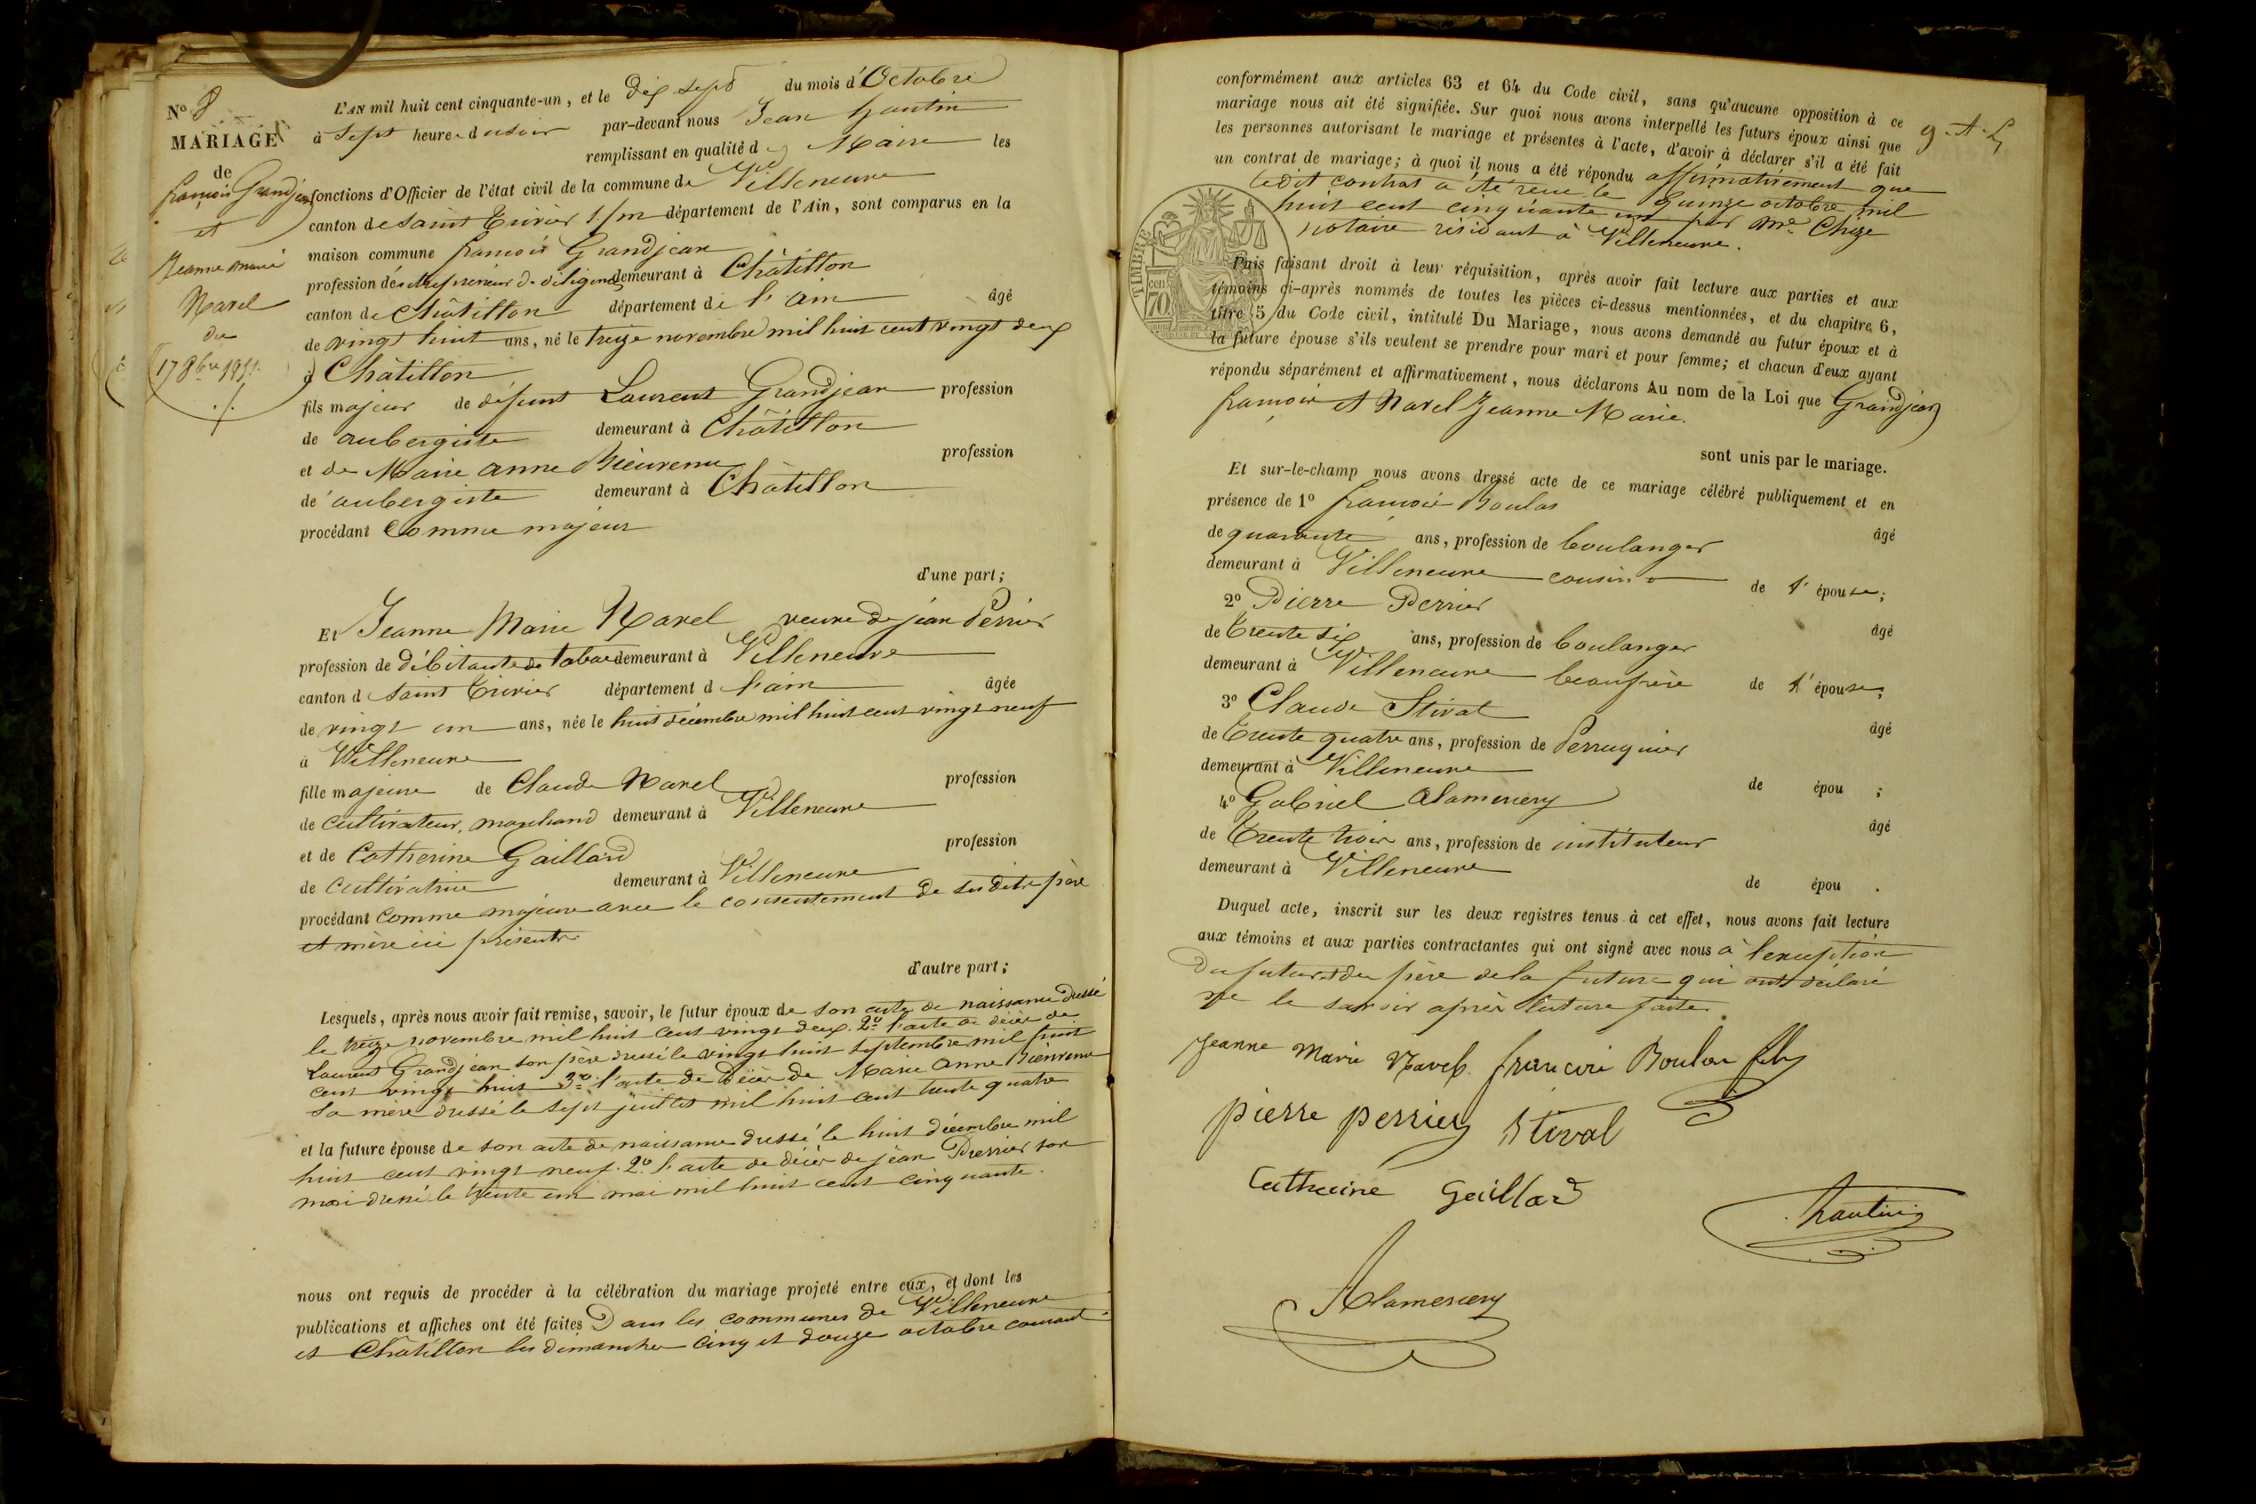 N° 8
MARIAGE
de
françois Grandjean
et
Jeanne marie
Navel
du
17 8bre 1851.
L'AN mil huit cent cinquante-un, et le dix sept du mois d'Octobre
à sept heures du soir par-devant nous Jean hautin
remplissant en qualité de Maire les
fonctions d'Officier de l'état civil de la commune de Villeneuve
canton de saint Trivier s/m département de l'Ain, sont comparus en la
maison commune françois Grandjean
profession d'entrepreneur de diligences demeurant à Châtillon
canton de Châtillon département de l'ain âgé
de vingt huit ans, né le treize novembre mil huit cent vingt deux
à Châtillon
fils majeur de défunt Laurent Grandjean profession
de aubergiste demeurant à Châtillon
et de Marie anne Bienvenu profession
de aubergiste demeurant à Châtillon
procédant Comme majeur
d'une part;
Et Jeanne Marie Navel veuve de jéan Perrier
profession de débitante de tabac demeurant à Villeneuve
canton d saint Trivier département d l'ain âgée
de vingt un ans, née le huit décembre mil huit cent vingt neuf
à Villeneuve
fille majeure de Claude Navel profession
de cultivateur, marchand demeurant à Villeneuve
et de Catherine Gaillard profession
de cultivatrice demeurant à Villeneuve
procédant comme majeure avec le consentement de ses dits père
et mère ici présents
d'autre part;
Lesquels, après nous avoir fait remise, savoir, le futur époux de son acte de naissance dressé
le treize novembre mil huit cent vingt deux. 2° l'acte de décès de
Laurent Grandjéan son père dressé le vingt huit septembre mil huit
cent vingt huit 3° l'acte de décès de Marie Anne Bienvenu
sa mère dressé le sept juillet mil huit cent trente quatre
et la future épouse de son acte de naissance dressé le huit décembre mil
huit cent vingt neuf. 2° l'acte de décès de jéan Perrier son
mari dressé le trente un mai mil huit cent cinquante.
nous ont requis de procéder à la célébration du mariage projeté entre eux, et dont les
publications et affiches ont été faites Dans les communes de Villeneuve
et Châtillon les dimanches cinq et douze octobre courant
conformément aux articles 63 et 64 du Code civil, sans qu'aucune opposition à ce
mariage nous ait été signifiée. Sur quoi nous avons interpellé les futurs époux ainsi que
les personnes autorisant le mariage et présentes à l'acte, d'avoir à déclarer s'il a été fait
un contrat de mariage; à quoi il nous a été répondu affirmativement que
ledit contrat a été reçu le quinze octobre mil
huit cent cinquante un par Me Chize
notaire résidant à Villeneuve.
TIMBRE
70 cen
Puis faisant droit à leur réquisition, après avoir fait lecture aux parties et aux
témoins ci-après nommés de toutes les pièces ci-dessus mentionnées, et du chapitre 6,
titre 5 du Code civil, intitulé Du Mariage, nous avons demandé au futur époux et à
la future épouse s'ils veulent se prendre pour mari et pour femme; et chacun d'eux ayant
répondu séparément et affirmativement, nous déclarons Au nom de la Loi que Grandjean
françois et Navel Jeanne Marie.
sont unis par le mariage.
Et sur-le-champ nous avons dressé acte de ce mariage célébré publiquement et en
présence de 1° françois Boulas
âgé
de quarante ans, profession de boulanger
demeurant à Villeneuve cousin de l'épouse;
2° Pierre Perrier
âgé
de trente six ans, profession de boulanger
demeurant à Villeneuve beaufrère de l'épouse;
3° Claude Stival
âgé
de trente quatre ans, profession de Perruquier
demeurant à Villeneuve
de épou ;
4° Gabriel Alamercery
âgé
de trente trois ans, profession de instituteur
demeurant à Villeneuve
de épou .
Duquel acte, inscrit sur les deux registres tenus à cet effet, nous avons fait lecture
aux témoins et aux parties contractantes qui ont signé avec nous à l'exception
du futur et du père de la future qui ont déclaré
ne le savoir après lecture faite.
Jeanne Marie Navel. francois Boulas
pierre perrier Stival
Catherine Gaillard
hautin
Alamercery